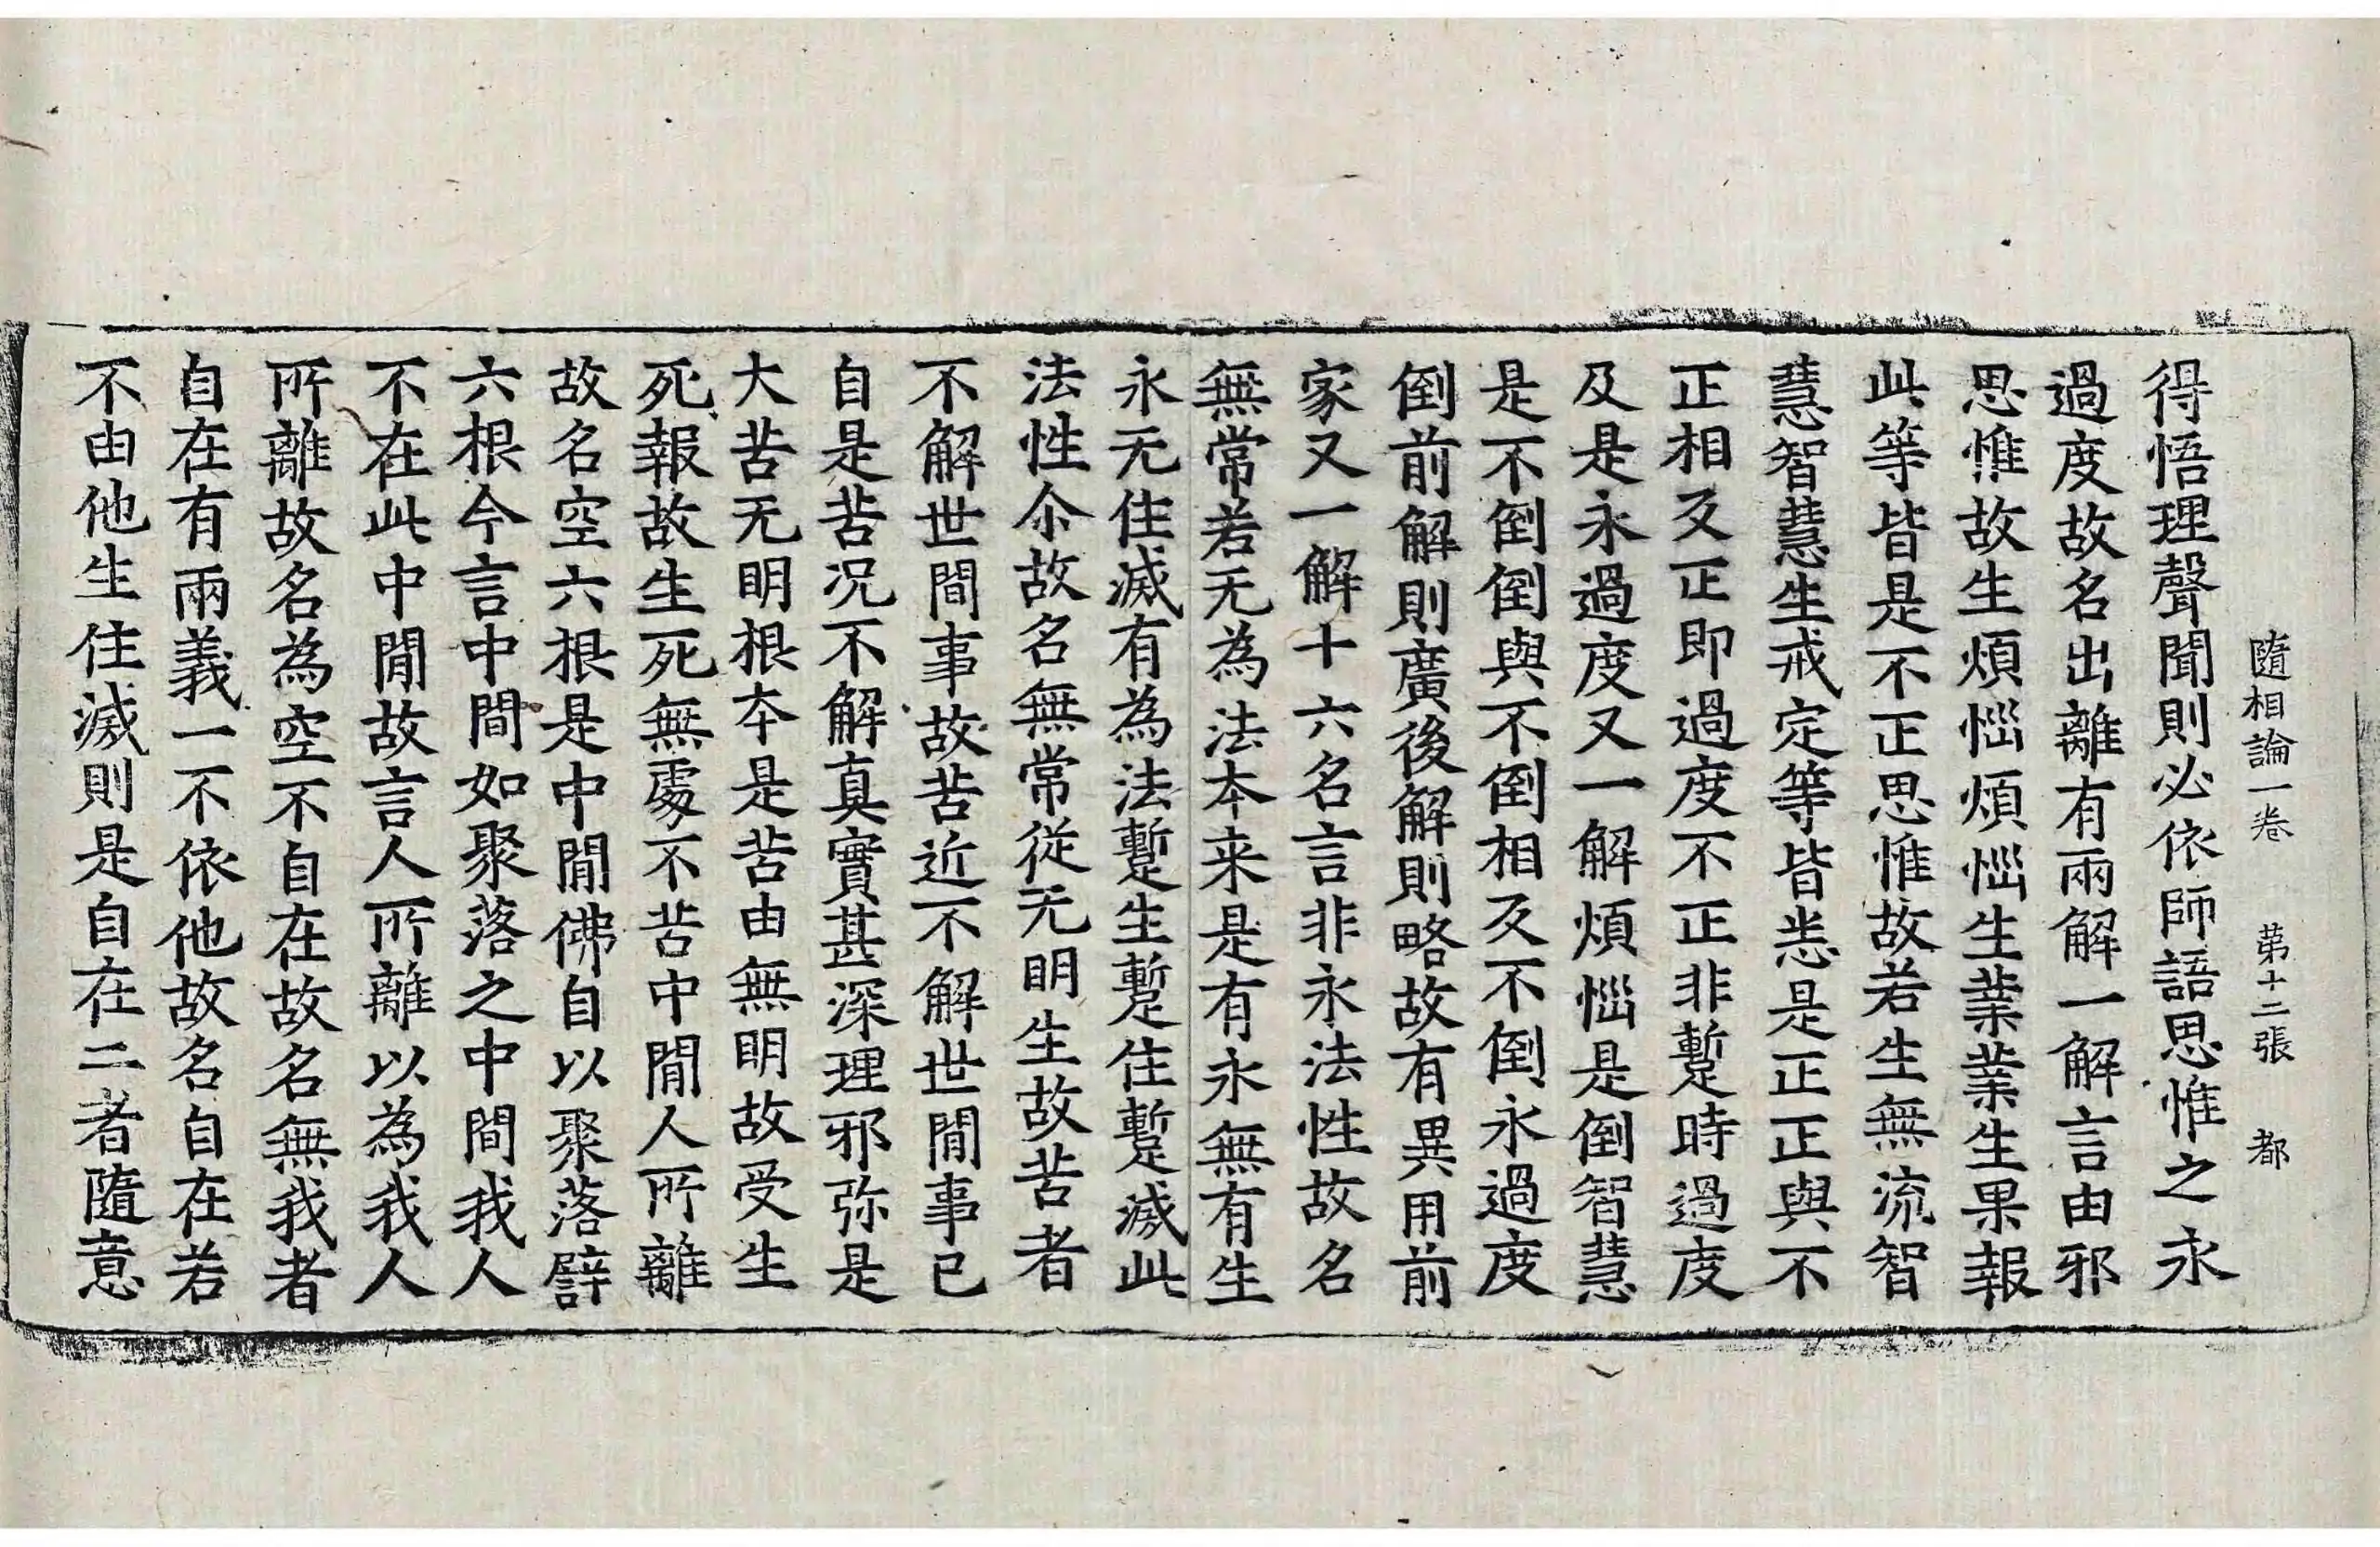 隨相論一卷　第十二張　都
得悟理聲聞則必依師語思惟之永
過度故名出離有兩解一解言由邪
思惟故生煩惱煩惱生業業生果報
此等皆是不正思惟故若生無流智
慧智慧生戒定等皆悉是正正與不
正相反正即過度不正非蹔時過度
及是永過度又一解煩惱是倒智慧
是不倒倒與不倒相反不倒永過度
倒前解則廣後解則略故有異用前
家又一解十六名言非永法性故名
無常若无為法本来是有永無有生
永无住滅有為法蹔生蹔住蹔滅此
法性尒故名無常從无明生故苦者
不解世間事故苦近不解世間事已
自是苦况不解真實甚深理邪弥是
大苦无明根本是苦由無明故受生
死報故生死無處不苦中間人所離
故名空六根是中間佛自以聚落譬
六根今言中間如聚落之中間我人
不在此中間故言人所離以為我人
所離故名為空不自在故名無我者
自在有兩義一不依他故名自在若
不由他生住滅則是自在二者隨意